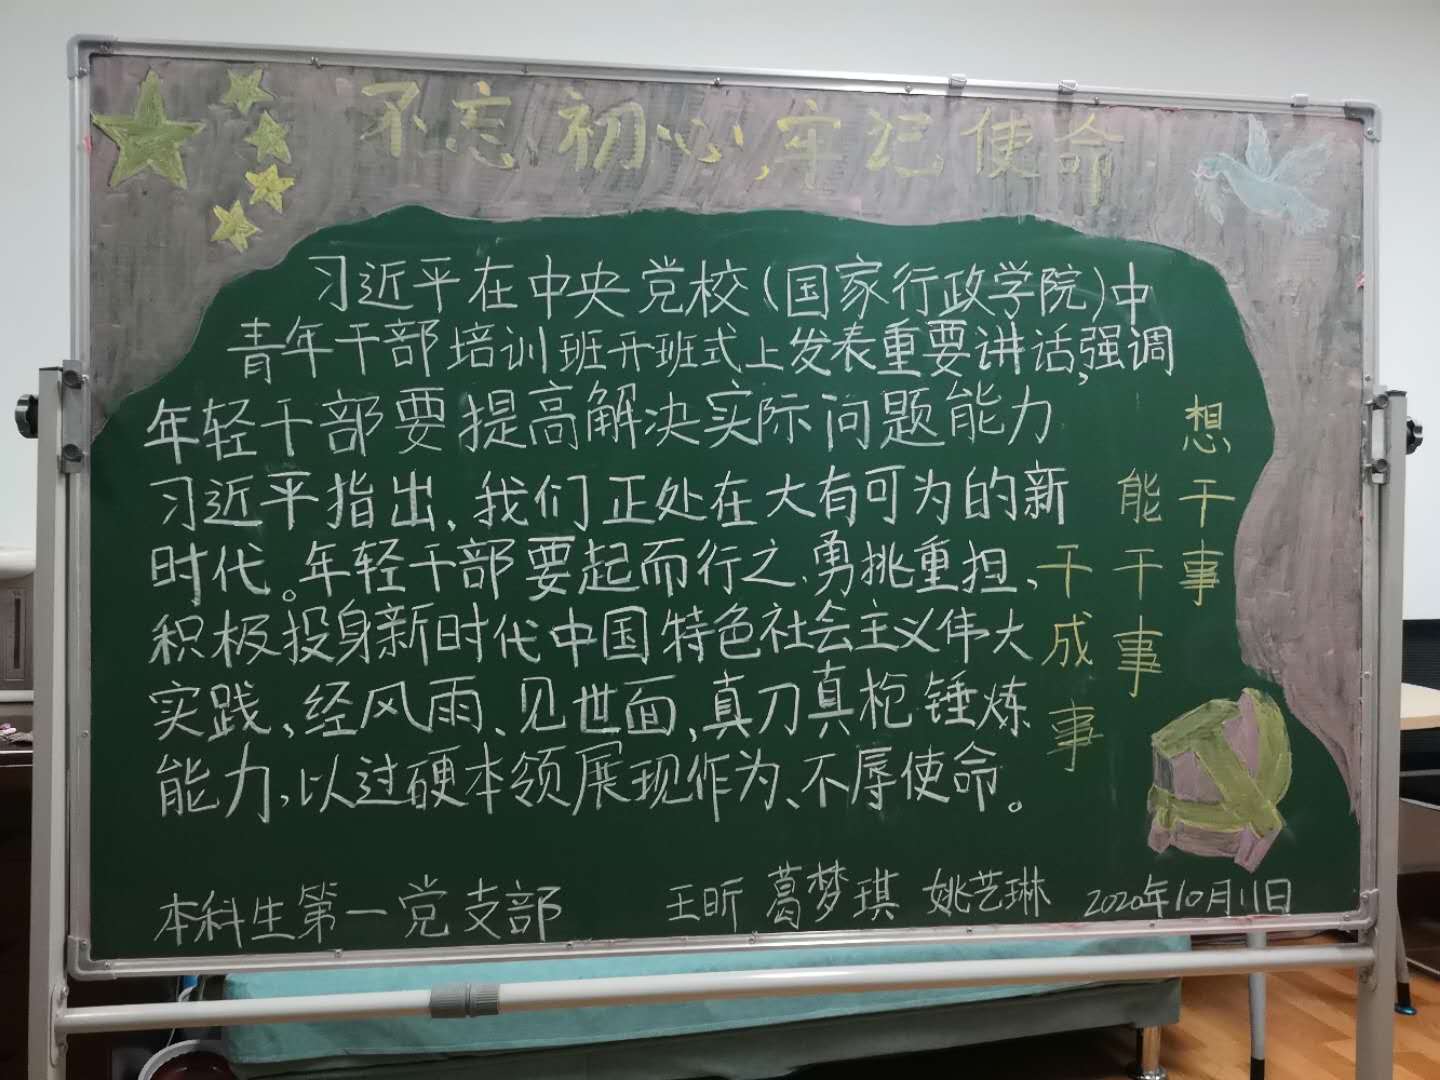 不忘初心,牢记使命
习近平在中央党校(国家行政学院)中
青年干部培训班开班式上发表重要讲话,强调
年轻干部要提高解决实际问题能力
习近平指出,我们正处在大有可为的新
时代。年轻干部要起而行之、勇挑重担、
积极投身新时代中国特色社会主义伟大
实践、经风雨、见世面,真刀真枪锤炼
能力,以过硬本领展现作为、不辱使命。
想干事
能干事
干成事
本科生第一党支部 王昕 葛梦琪 姚艺琳 2020年10月11日